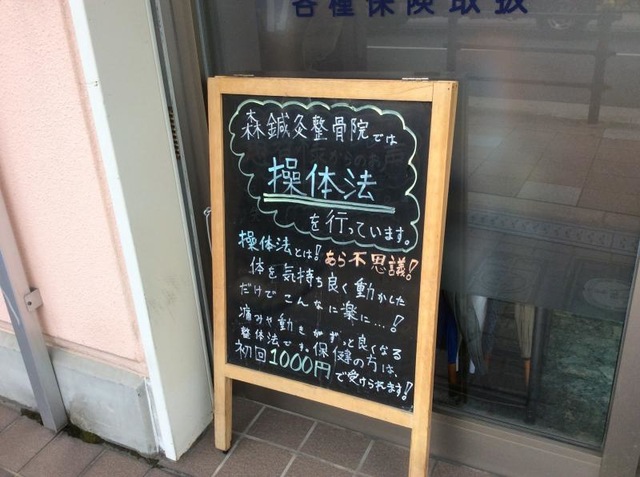 各種保険取扱
森鍼灸整骨院では
操体法
を行っています。
操体法とは!あら不思議!
体を気持ち良く動かした
だけでこんなに楽に…!
痛みや動きがずっと良くなる
整体法です。保健の方は、
初回1000円で受けられます!